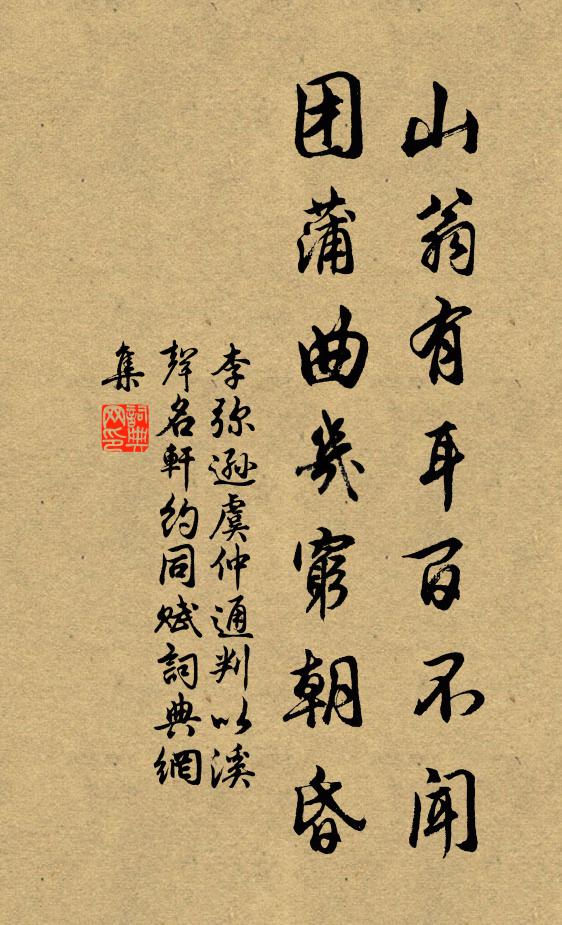 山翁有耳百不闻
团蒲曲几穷朝昏
李弥逊虞仲通判以溪
声名轩约同赋词典網
集
詞典
网印